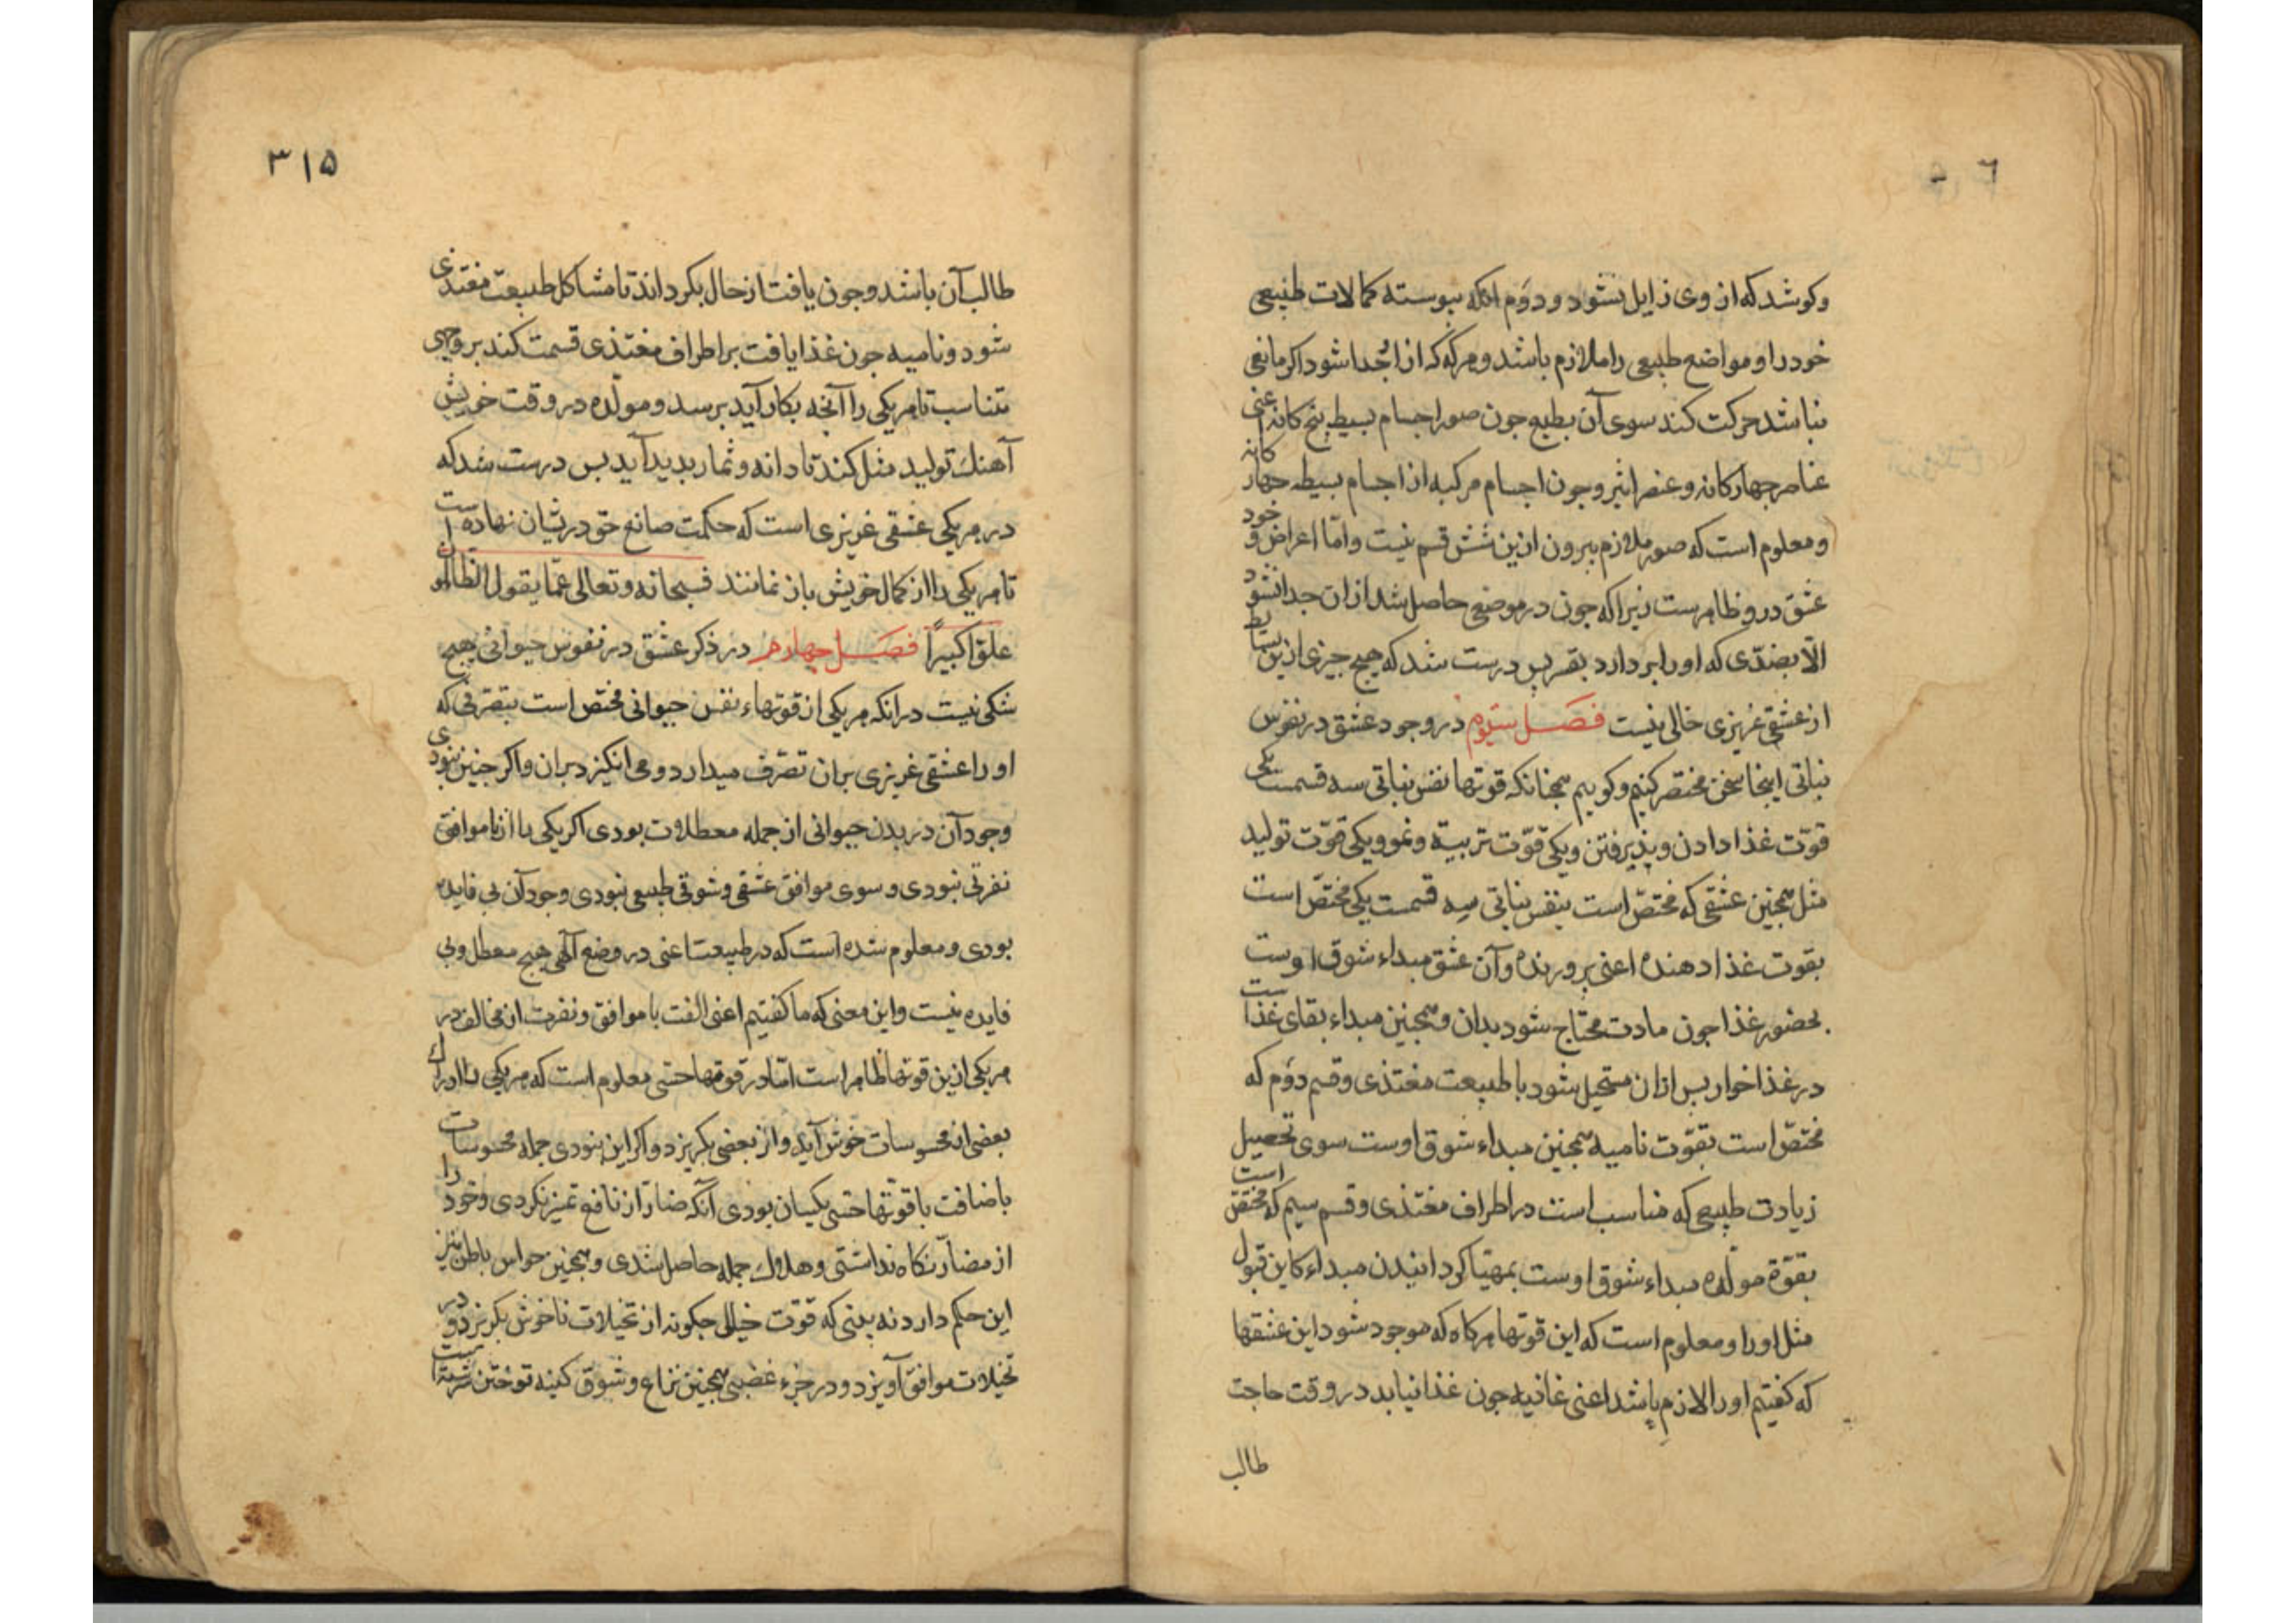 ٦
وکوشد که از وی زایل نشود و دوّم انکه پیوسته کمالات طبیعی
خود را و مواضع طبیعی را ملازم باشد و هرکه که از ان جدا شود اکر مانعی
نباشد حرکت کند سوی آن بطبع جون صور اجسام بسیط پنج کانه اعنی
عناصر جهارکانه و عنصر اثیر و جون اجسام مرکبه از اجسام بسیطه جهار کانه
و معلوم است که صور ملازم بیرون ازین شش قسم نیست و امّا اعراض خود و
عشق درو ظاهرست زیرا که جون در موضعی حاصل شد از ان جدا نشود
الّا بضدّی که او را بر دارد بقهر پس درست شد که هیج جیزی ازین بسایط
از عشقی غریزی خالی نیست فصل سیّوم در وجود عشق در نفوس
نباتی اینجا سخن مختصر کنیم و کوییم همجنانکه قوتها نفس نباتی سه قسمست یکی
قوّت غذا دادن و پذیرفتن و یکی قوّت تربیة و نمو و یکی قوّت تولید
مثل همجنین عشقی که مختصّ است بنفس نباتی سه قسمت یکی مختصّ است
بقوت غذا دهنده اعنی پرورنده و آن عشق مبداء شوق اوست
بحضور غذا جون مادت محتاج شود بدان و همجنین مبداء بقای غذاست
در غذا خوار پس از ان مستحیل شود با طبیعت مغتذی و قسم دوّم که
مختصّ است بقوّت نامیه همجنین مبداء شوق اوست سوی تحصیل
زیادت طبیعی که مناسب است در اطراف مغتذی و قسم سیم که مختصّ است
بقوّة مولّده مبداء شوق اوست بمهیّا کردانیدن مبداء کاین قبول
مثل او را و معلوم است که این قوتها هرکاه که موجود شود این عشقها
که کفتیم او را لازم باشد اعنی غاذیه جون غذا نیابد در وقت حاجت
طالب
۳۱۵
طالب آن باشد و جون یافت از حال بکرداند تا مشاکل طبیعت مغتذی
شود و نامیه جون غذا یافت بر اطراف مغتذی قسمت کند بر وجهی
متناسب تا هریکی را آنجه بکار آید برسد و مولّده در وقت خویش
آهنك تولید مثل کند تا دانه و ثمار پدید آید پس درست شد که
در هریکی عشقی غریزی است که حکمت صانع حق دریشان نهاده است
تا هریکی را از کمال خویش باز نمانند فسبحانه و تعالی عمّا یقول الظالمون
علوّا کبیراً فصل جهارم در ذکر عشق در نفوس حیوانی هیج
شکی نیست در انکه هریکی از قوتهاء نفس حیوانی مختص است بتصرفی که
او را عشقی غریزی بران تصرّف میدارد و می انکیزد بران و اکر جنین نبودی
وجود آن در بدن حیوانی از جمله معطلات بودی اکر یکی را از ناموافق
نفرتی نبودی و سوی موافق عشقی و شوقی طبیعی نبودی وجود آن بی فایده
بودی و معلوم شده است که در طبیعت اعنی در وضع الهی هیج معطل و بی
فایده نیست و این معنی که ما کفتیم اعنی الفت با موافق و نفرت از مخالف در
هریکی ازین قوتها ظاهر است امّا در قوتها حسّی معلوم است که هریکی را ادراك
بعضی از محسوسات خوش آید و از بعضی بکریزد و اکر این نبودی جمله محسوسات
باضافت با قوتها حسّی یکسان بودی آنکه ضارّ از نافع تمیز نکردی و خود را
از مضارّ نکاه نداشتی و هلاك جمله حاصل شدی و همجنین حواس باطن نیز
این حکم دارد نه بینی که قوّت خیالی جکونه از تخیلات ناخوش بکریزد و در
تخیلات موافق آویزد و در جزء غضبی همجنین نزاع و شوق کینه توختن